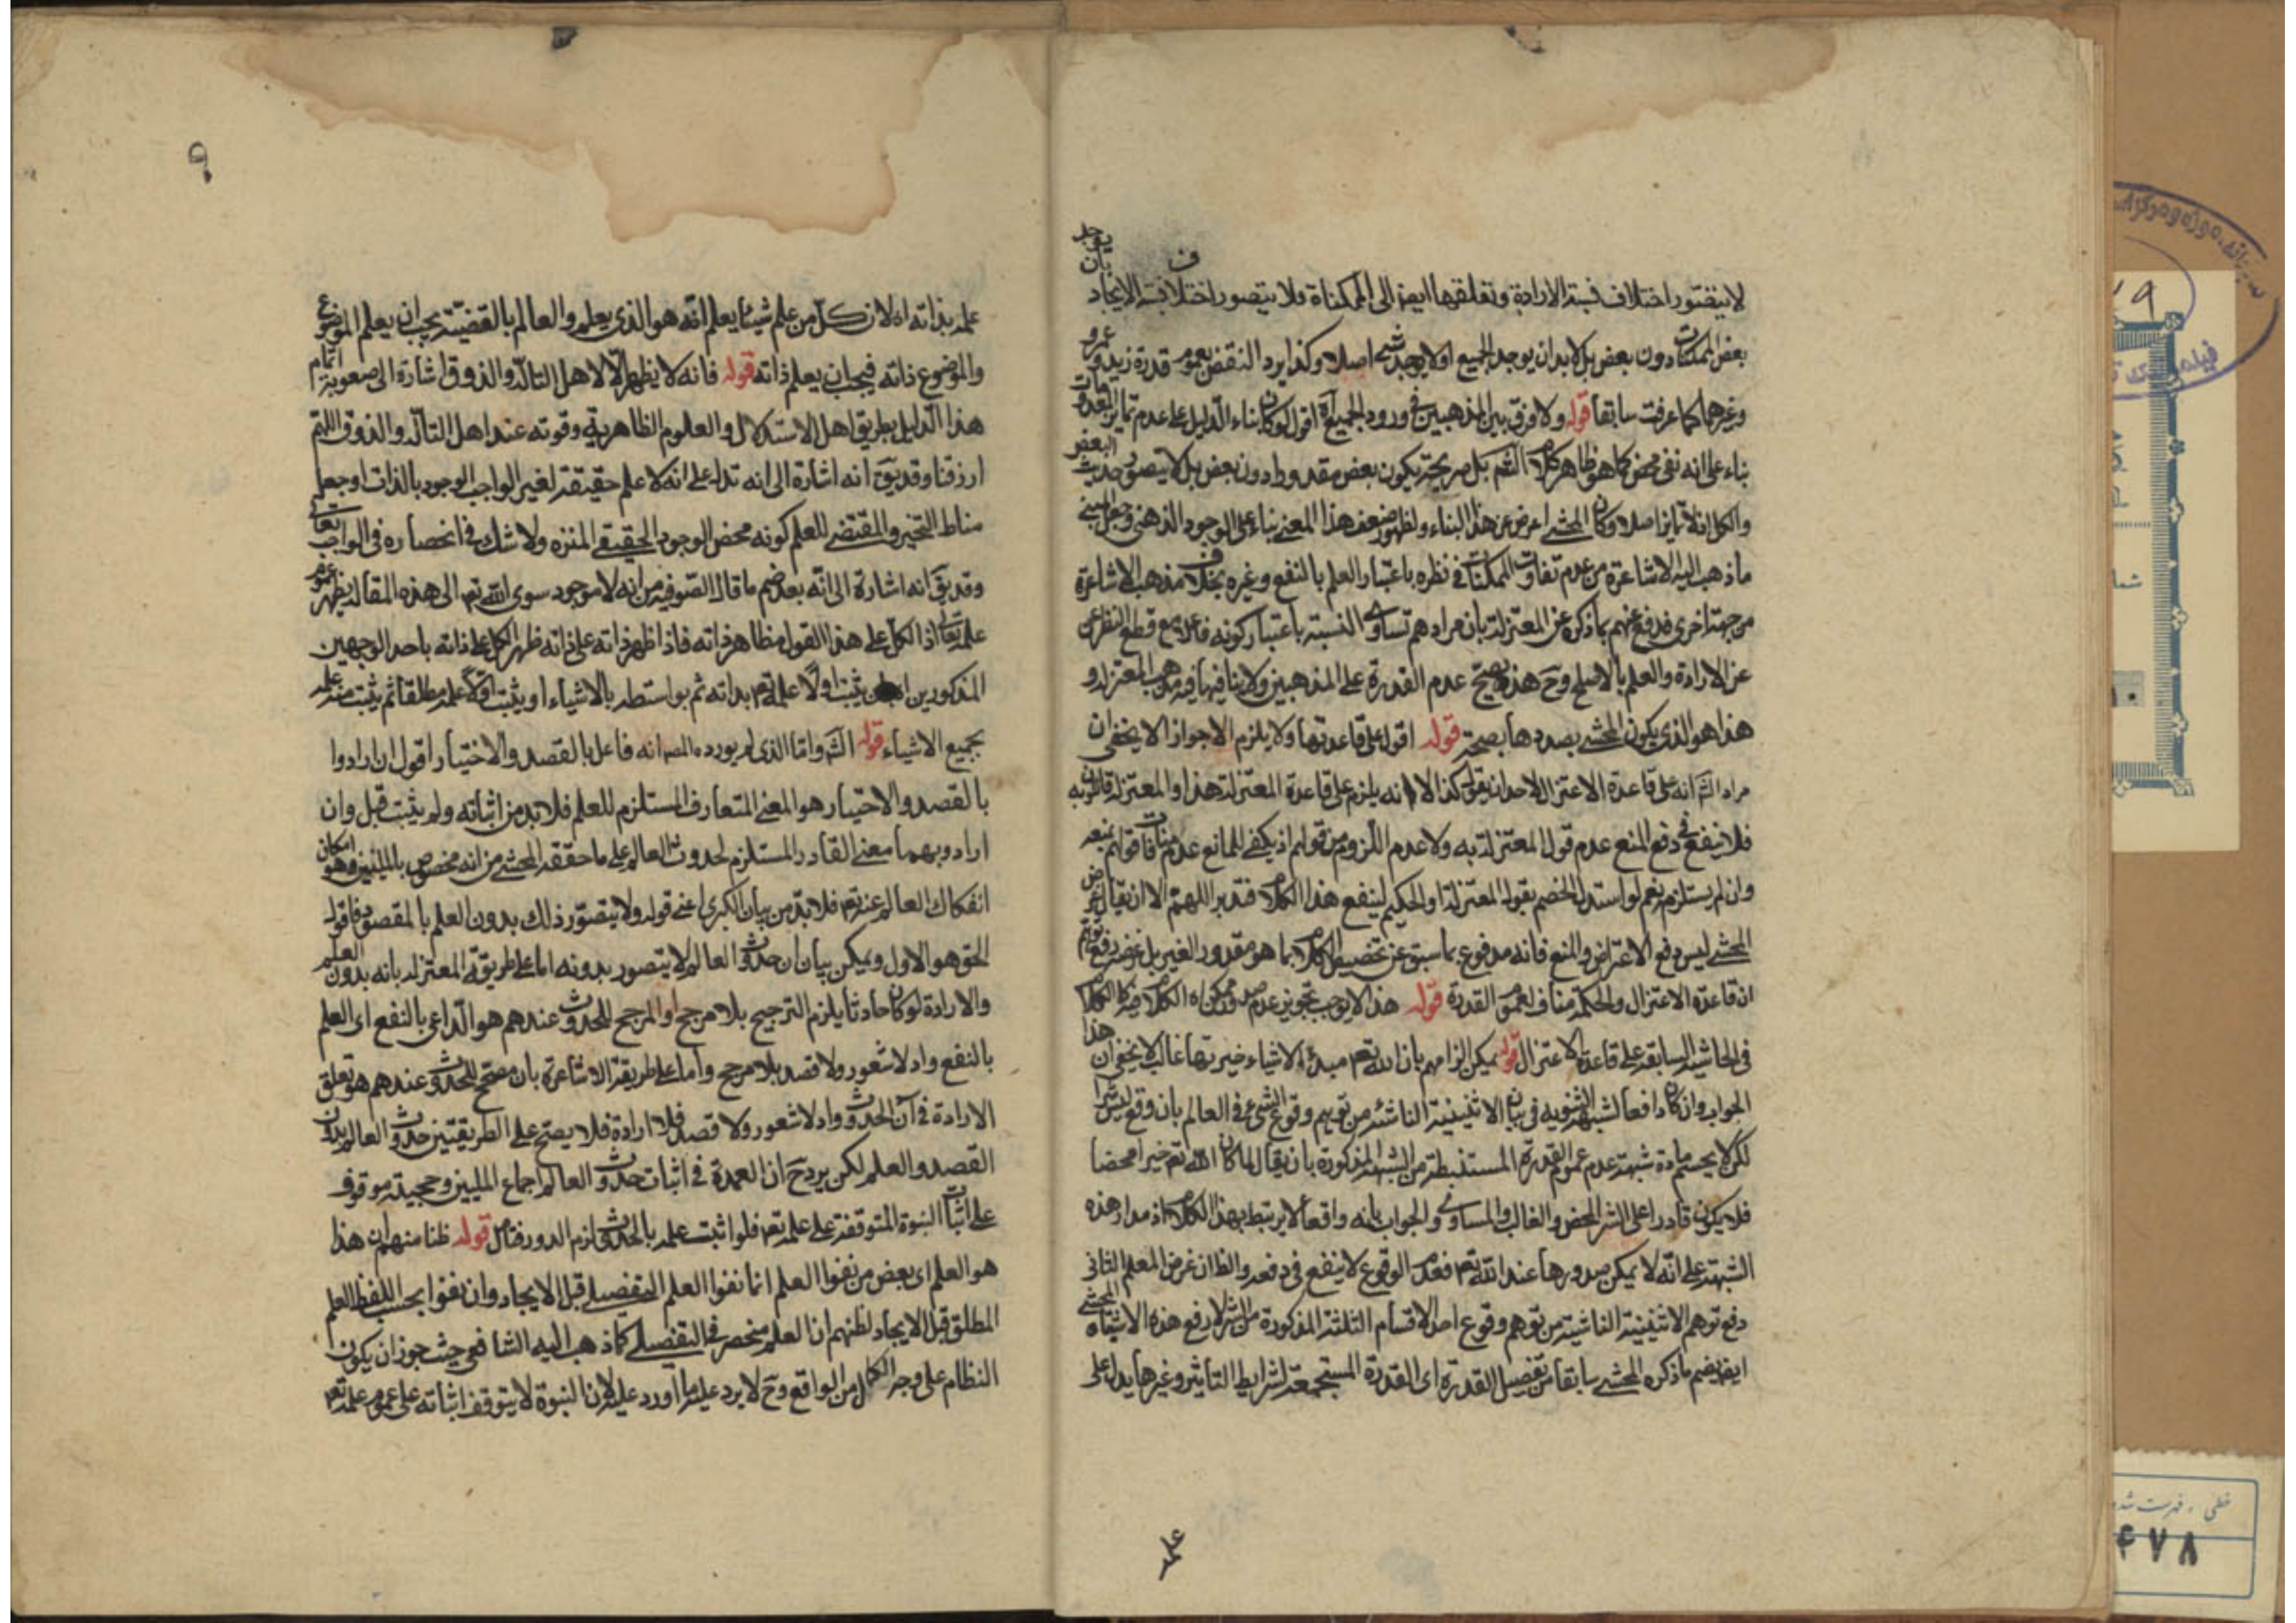 لا يتصور اختلاف نسبة الارادة وتعلقها ايضا الى الممكناة فلا يتصور اختلاف نسبة الايجاد بان يوجد
بعض الممكنات دون بعض بل لابد ان يوجد الجميع او لا يوجد شيء اصلا وكذا يرد النقض بعموم قدرة زيد وعمرو
وغيرهما كما عرفت سابقا قوله ولا فرق بين المذهبين في ورود الجميع اه اقول لو كان بناء الدليل على عدم تمايز المعدومات
بناء على انه نفي محض كما هو ظاهر كلام الشم بل صريحه يكون بعض مقدورا دون بعض بل لا يتصور حديث البعض
والكل اذ لا تمايز اصلا وكان المحشى اعرض عن هذا البناء ولظهور ضعف هذا المعنى بناء على الوجود الذهنى وجعل المبنى
ما ذهب اليه الاشاعرة من عدم تفاوت الممكنات في نظره باعتبار العلم بالنفع وغيره بخلاف مذهب الاشاعرة
من جهة اخرى فدفع عنهم بما ذكره عن المعتزلة بان مرادهم تساوى النسبة باعتبار كونه فاعلا مع قطع النظر عن
عن الارادة والعلم بالاصلح وح هذه يصح عدم القدرة على المذهبين ولا ينافيها فيه مذهب المعتزلة و
هذا هو الذى يكون المحشى بصددها بصحة قوله اقول على قاعدتها ولا يلزم الا جواز الا يخفى ان
مراد الش انه على قاعدة الاعتزال لاحد ان يقول كذا الا انه يلزم على قاعدة المعتزلة هذا والمعتزلة قائلون به
فلا ينفع في دفع المنع عدم قول المعتزلة به ولا عدم اللزوم من قولهم اذ يكفى للمانع عدم منافات قولهم لمنعه
وان لم يستلزم نعم لو استدل الخصم بقول المعتزلة او الحكيم لينفع هذا الكلام فتدبر اللهم الا ان يقال غرض
المحشى ليس دفع الاعتراض والمنع فانه مدفوع بما سبق عن تخصيص الكلام بما هو مقدور الغير بل غرضه رفع توهم
ان قاعدة الاعتزال والحكمة مناف لعموم القدرة قوله هذا لا يوجب تجويز عدم صدور ممكن اه الكلام فيه كالكلام
في الحاشية السابقة على قاعدة الاعتزال قوله يمكن الزامهم بان الله تعم مبدء الاشياء خيريتها غالب لا يخفى ان هذا
الجواب وان كان دافعا لشبهة الثنويه في بيان الاثنينية الناشئة من توهم وقوع الشر في العالم بان وقع ليس شرا
لكن لا يحسم مادة شبهة عدم عموم القدرة المستنبطة من الشبهة المذكورة بان يقال لما كان الله تعم خيرا محضا
فلا يكون قادرا على الشر المحض والغالب والمساوى والجواب بانه واقعا لا يرتبط بهذا الكلام اذ مدار هذه
الشبهة على انه لا يمكن صدورها عند الله تعم فعدم الوقوع لا ينفع في دفعه والظ ان غرض المعلم الثانى
دفع توهم الاثنينية الناشية من توهم وقوع احد الاقسام الثلثة المذكورة من الشر لا رفع هذه الاشتباه المحشى
ايض يضم ما ذكره المحشى سابقا من تفصيل القدرة اى القدرة المستجمعة لشرايط التاثير وغيرها يدل على
علمه
علمه بذاته اه لان كل من علم شيئا يعلم انه هو الذى يعلم والعالم بالقضية يجب ان يعلم الموضوع
والموضوع ذاته فيجب ان يعلم ذاته قوله فانه لا يظهر الا لاهل التاله والذوق اشارة الى صعوبة اتمام
هذا الدليل بطريق اهل الاستدلال والعلوم الظاهرية وقوته عند اهل التاله والذوق اللهم
ارزقنا وقد يق انه اشارة الى انه تدل على انه لا علم حقيقة لغير الواجب الوجود بالذات او جعل
مناط التخير والمقتضى للعلم كونه محض الوجود الحقيقي المنزه ولا شك في انحصاره في الواجب تعالى
وقد يق انه اشارة الى انه بعد ضم ما قال الصوفيه من انه لا موجود سوى الله تعم الى هذه المقالة يظهر عموم
علمه تعالى اذ الكل على هذا القول مظاهر ذاته فاذا ظهر ذاته على ذاته ظهر الكل على ذاته باحد الوجهين
المذكورين يثبت اولا علمه تعم بذاته ثم بواسطته بالاشياء او يثبت اولا علمه مطلقا ثم يثبت منه علمه
بجميع الاشياء قوله الش واما الذى لم يورده المصه انه فاعل بالقصد والاختيار اقول ان ارادوا
بالقصد والاختيار هو المعنى المتعارف المستلزم للعلم فلا بد من اثباته ولم يثبت قبل وان
ارادوا بهما معنى القادر المستلزم لحدوث العالم على ما حققه المحشى من انه مخصوص بالمليين وهو امكان
انفكاك العالم عنه تعم فلا بد من بيان الكبرى اعنى قوله ولا يتصور ذلك بدون العلم بالمقصود فاقول
الحق هو الاول ويمكن بيان ان حدوث العالم لا يتصور بدونه اما على طريقة المعتزلة بانه بدون العلم
والارادة لو كان حادثا يلزم الترجيح بلا مرجح او المرجح للحدوث عندهم هو الداعى بالنفع اى العلم
بالنفع واذ لا شعور ولا قصد بلا مرجح واما على طريقة الاشاعرة بان مصحح للحدوث عندهم هو تعلق
الارادة في آن الحدوث واذ لا شعور ولا قصد فلا ارادة فلا يصح على الطريقتين حدوث العالم بدون
القصد والعلم لكن يرد ح ان العمدة في اثبات حدوث العالم اجماع المليين وحجيته موقوف
على اثبات النبوة المتوقفة على علمه تعم فلو اثبت علمه بالحدوث لزم الدور فتامل قوله ظنا منهم ان هذا
هو العلم اى بعض من نفوا العلم انما نفوا العلم التفصيلى قبل الايجاد وان نفوا بحسب اللفظ العلم
المطلق قبل الايجاد لظنهم ان العلم منحصر في التفصيلى كما ذهب اليه الشافعى حيث جوز ان يكون
النظام على وجه الكمال من الواقع وح لا يرد عليه ما اورد عليه لان النبوة لا يتوقف اثباته على عموم علمه تعم
٤٧٨